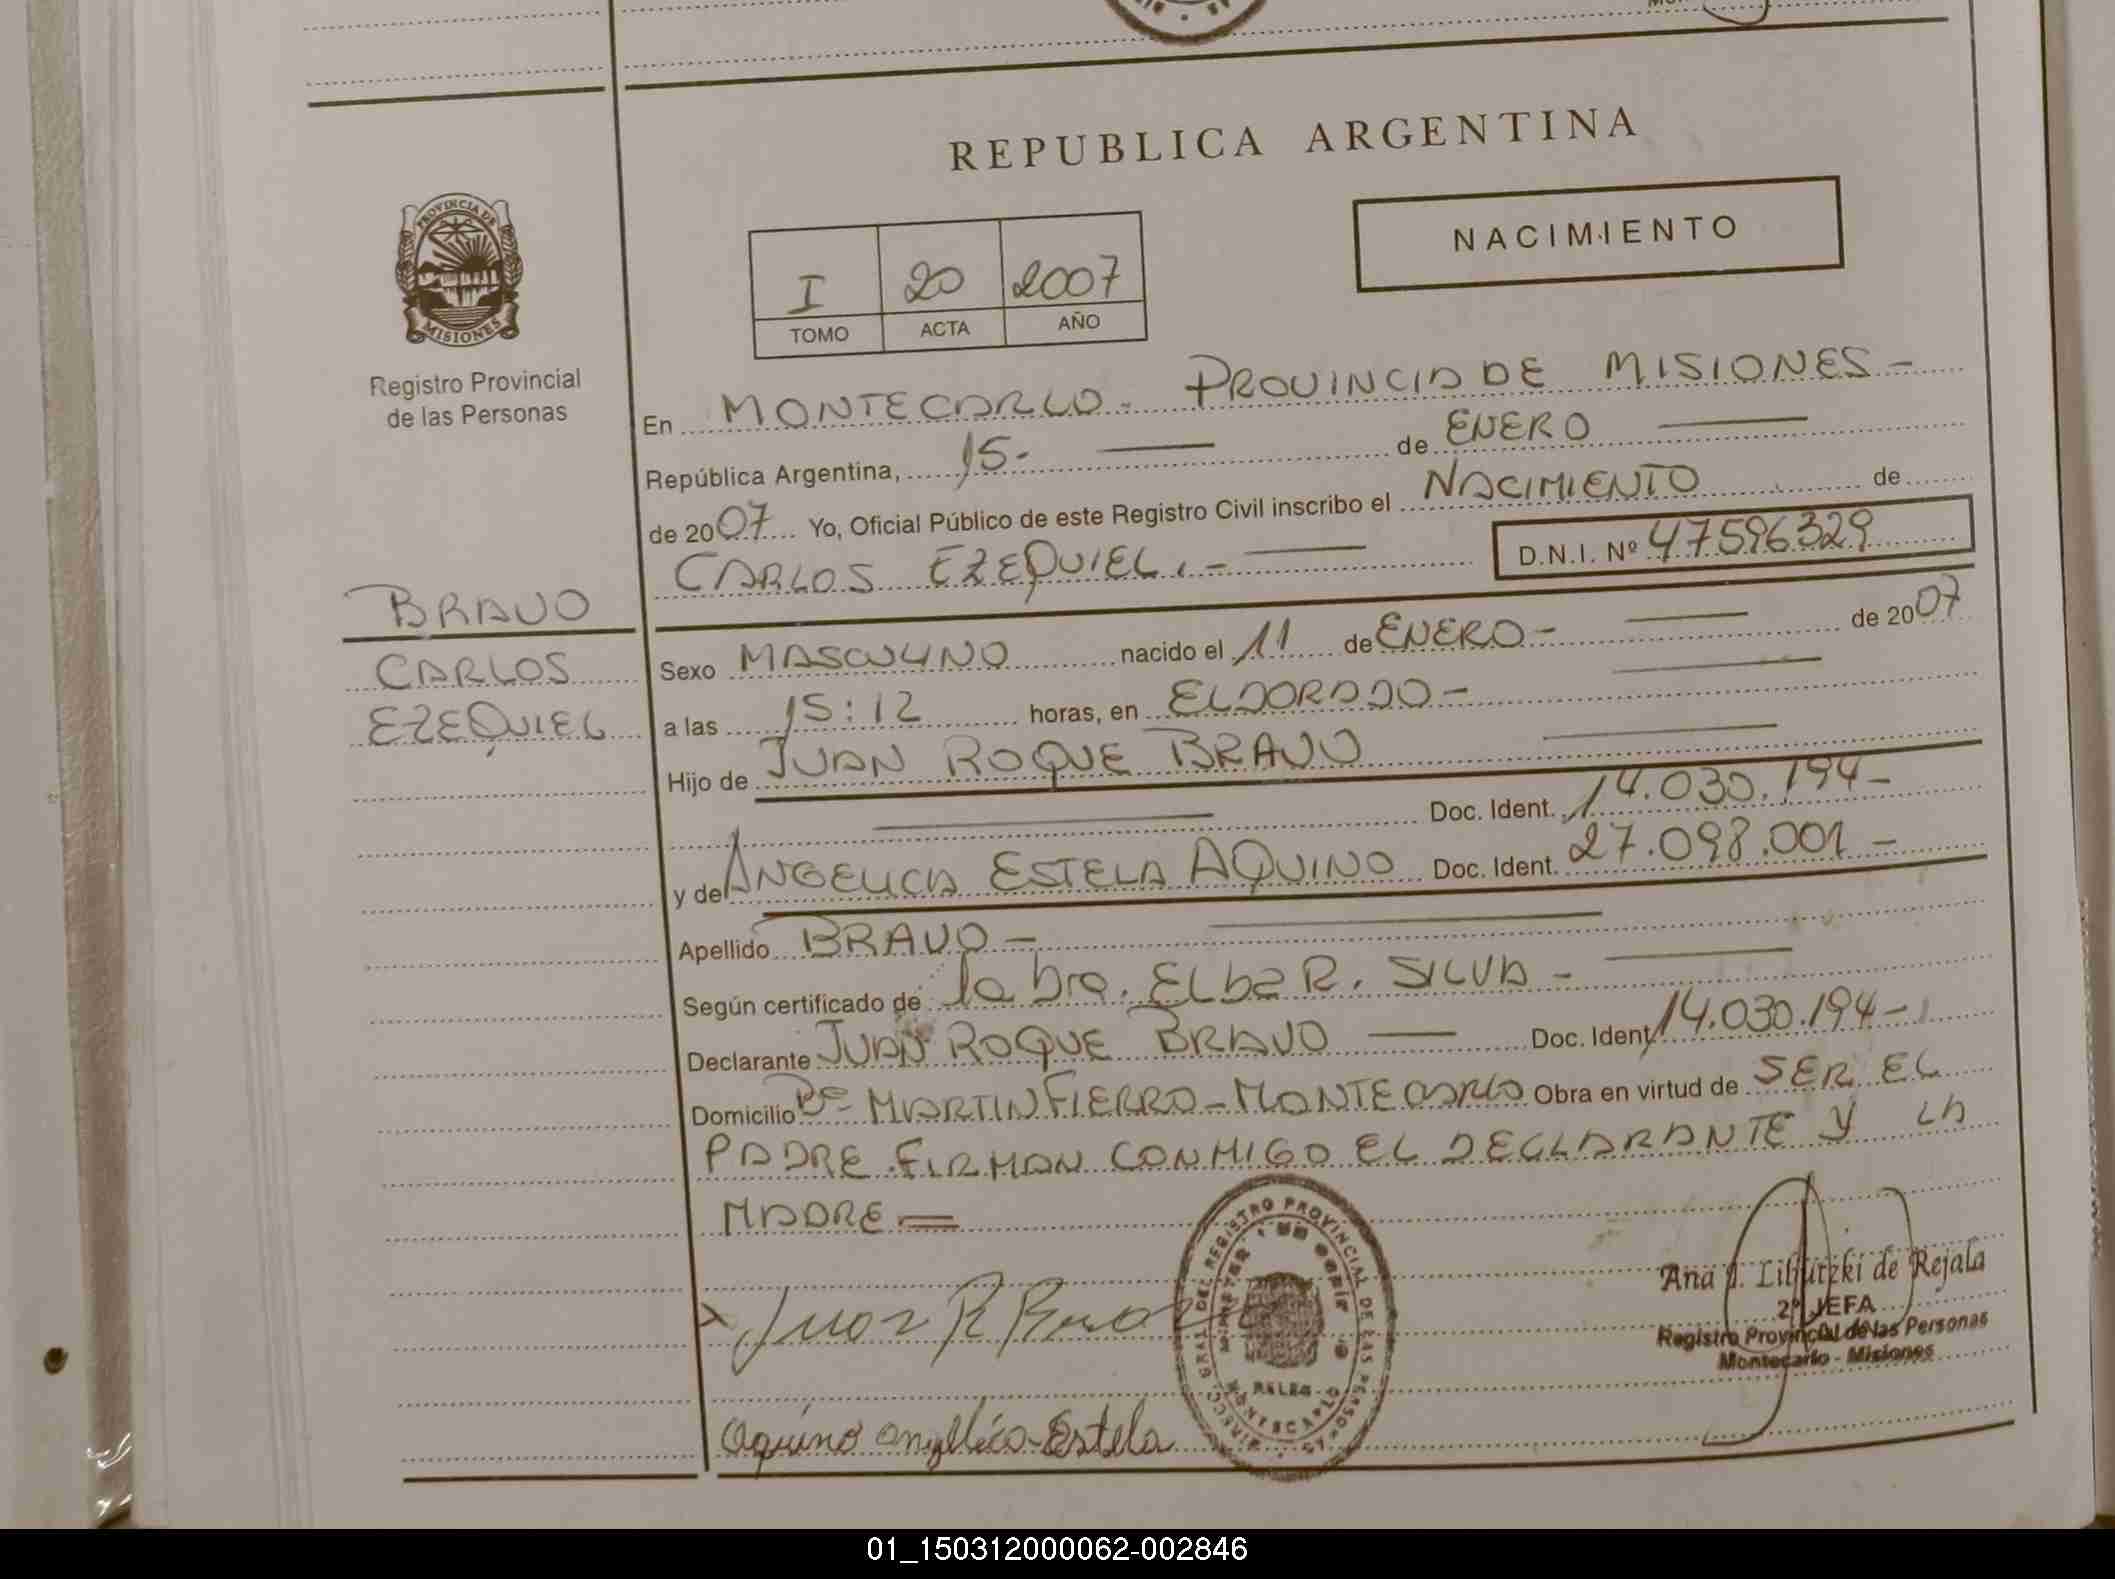 REPUBLICA ARGENTINA
NACIMIENTO
I 20 2007
TOMO ACTA AÑO
PROVINCIA DE
MISIONES
Registro Provincial
de las Personas
BRAVO
CARLOS
EZEQUIEL
En MONTECARLO - PROVINCIA DE MISIONES -
República Argentina, 15 - de ENERO
de 2007 Yo, Oficial Público de este Registro Civil inscribo el NACIMIENTO de
CARLOS EZEQUIEL . - D.N.I. Nº 47596329
Sexo MASCULINO nacido el 11 de ENERO - de 2007
a las 15:12 horas, en ELDORADO -
Hijo de JUAN ROQUE BRAVO
Doc. Ident. 14.030.194 -
y de ANGELICA ESTELA AQUINO Doc. Ident. 27.098.001 -
Apellido BRAVO -
Según certificado de la Dra. ELba R. SILVA -
Declarante JUAN ROQUE BRAVO Doc. Ident. 14.030.194 -
Domicilio Bº MARTIN FIERRO - MONTECARLO Obra en virtud de SER EL
PADRE FIRMAN CONMIGO EL DECLARANTE Y LA
MADRE =
Juan R Bravo
Aquino Angélica Estela
DIRECC. GRAL DEL REGISTRO PROVINCIAL DE LAS PERSONAS
MONTECARLO
Ana Liputzki de Rejala
2º JEFA
Registro Provincial de las Personas
Montecarlo - Misiones
01_150312000062-002846